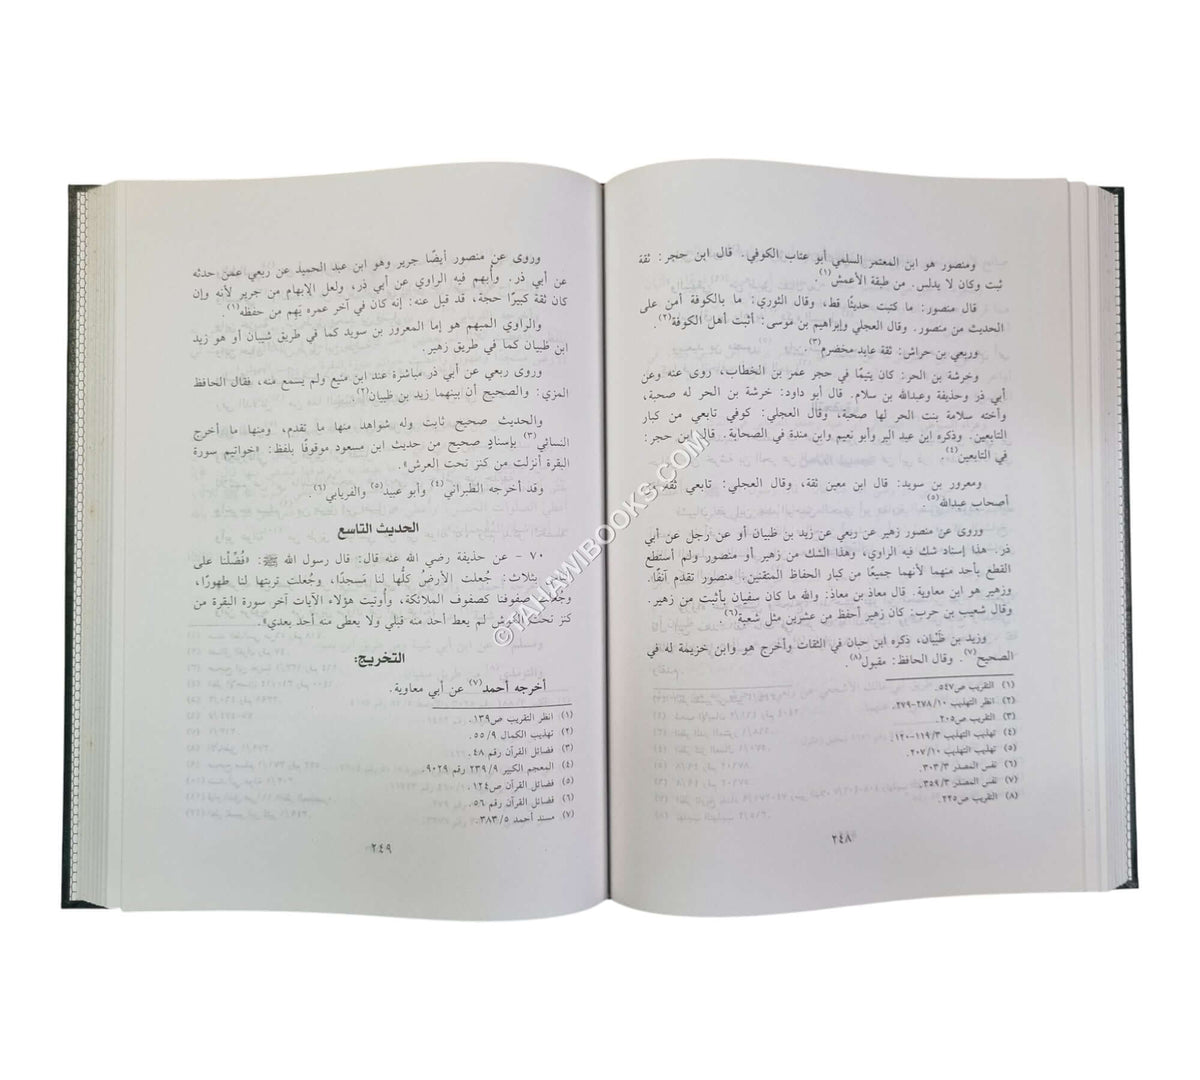 ومنصور هو ابن المعتمر السلمي أبو عتاب الكوفي. قال ابن حجر: ثقة
ثبت وكان لا يدلس. من طبقة الأعمش(١).
قال منصور: ما كتبت حديثًا قط، وقال الثوري: ما بالكوفة أمن على
الحديث من منصور. وقال العجلي وإبراهيم بن موسى: أثبت أهل الكوفة(٢).
وربعي بن حراش: ثقة عابد مخضرم(٣).
وخرشة بن الحر: كان يتيمًا في حجر عمر بن الخطاب، روى عنه وعن
أبي ذر وحذيفة وعبدالله بن سلام. قال أبو داود: خرشة بن الحر له صحبة،
وأخته سلامة بنت الحر لها صحبة، وقال العجلي: كوفي تابعي من كبار
التابعين. وذكره ابن عبد البر وأبو نعيم وابن مندة في الصحابة. قال ابن حجر:
في التابعين(٤).
ومعرور بن سويد: قال ابن معين ثقة، وقال العجلي: تابعي ثقة من
أصحاب عبدالله(٥)
وروى عن منصور زهير عن ربعي عن زيد بن ظبيان أو عن رجل عن أبي
ذر. هذا إسناد شك فيه الراوي، وهذا الشك من زهير أو منصور ولم أستطع
القطع بأحد منهما لأنهما جميعًا من كبار الحفاظ المتقنين. منصور تقدم آنفًا.
وزهير هو ابن معاوية. قال معاذ بن معاذ: والله ما كان سفيان بأثبت من زهير.
وقال شعيب بن حرب: كان زهير أحفظ من عشرين مثل شعبة(٦).
وزيد بن ظَبْيان، ذكره ابن حبان في الثقات وأخرج هو وابن خزيمة له في
الصحيح(٧). وقال الحافظ: مقبول(٨).
(١) التقريب ص٥٤٧.
(٢) انظر التهذيب ٢٧٨/١٠-٢٧٩.
(٣) التقريب ص٢٠٥.
(٤) تهذيب التهذيب ١١٩/٣-١٢٠.
(٥) تهذيب التهذيب ٢٠٧/١٠.
(٦) نفس المصدر ٣٠٣/٣.
(٧) نفس المصدر ٣٥٩/٣.
(٨) التقريب ص٢٢٥.
٢٤٨
وروى عن منصور أيضًا جرير وهو ابن عبد الحميد عن ربعي عمن حدثه
عن أبي ذر. وأُبهم فيه الراوي عن أبي ذر، ولعل الإبهام من جرير لأنه وإن
كان ثقة كبيرًا حجة، قد قيل عنه: إنه كان في آخر عمره يَهِم من حفظه(١).
والراوي المبهم هو إما المعرور بن سويد كما في طريق شيبان أو هو زيد
ابن ظبيان كما في طريق زهير.
وروى ربعي عن أبي ذر مباشرة عند ابن منيع ولم يسمع منه، فقال الحافظ
المزي: والصحيح أن بينهما زيد بن ظبيان(٢).
والحديث صحيح ثابت وله شواهد منها ما تقدم، ومنها ما أخرج
النسائي(٣) بإسناد صحيح من حديث ابن مسعود موقوفًا بلفظ: «خواتيم سورة
البقرة أنزلت من كنز تحت العرش».
وقد أخرجه الطبراني(٤) وأبو عبيد(٥) والفريابي(٦).
الحديث التاسع
٧٠ - عن حذيفة رضي الله عنه قال: قال رسول الله ﷺ: «فُضِّلْنا على
بثلاث: جُعلت الأرضُ كلُّها لنا مَسجدًا، وجُعلت تربتها لنا طهورًا،
وجُعلت صفوفنا كصفوف الملائكة، وأُوتيت هؤلاء الآيات آخر سورة البقرة من
كنز تحت العرش لم يعط أحد منه قبلي ولا يعطى منه أحد بعدي».
التخريج:
أخرجه أحمد(٧) عن أبي معاوية.
(١) انظر التقريب ص١٣٩.
(٢) تهذيب الكمال ٥٥/٩.
(٣) فضائل القرآن رقم ٤٨.
(٤) المعجم الكبير ٢٣٩/٩ رقم ٩٠٢٩.
(٥) فضائل القرآن ص١٢٤.
(٦) فضائل القرآن رقم ٥٦.
(٧) مسند أحمد ٣٨٣/٥.
٢٤٩
© TAHAWIBOOKS.COM